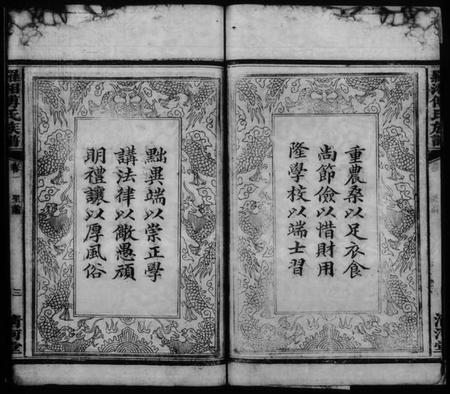 重農桑以足衣食
尚節儉以惜財用
隆學校以端士習
黜異端以崇正學
講法律以儆愚頑
明禮讓以厚風俗
羅湘傅氏族譜
清河堂